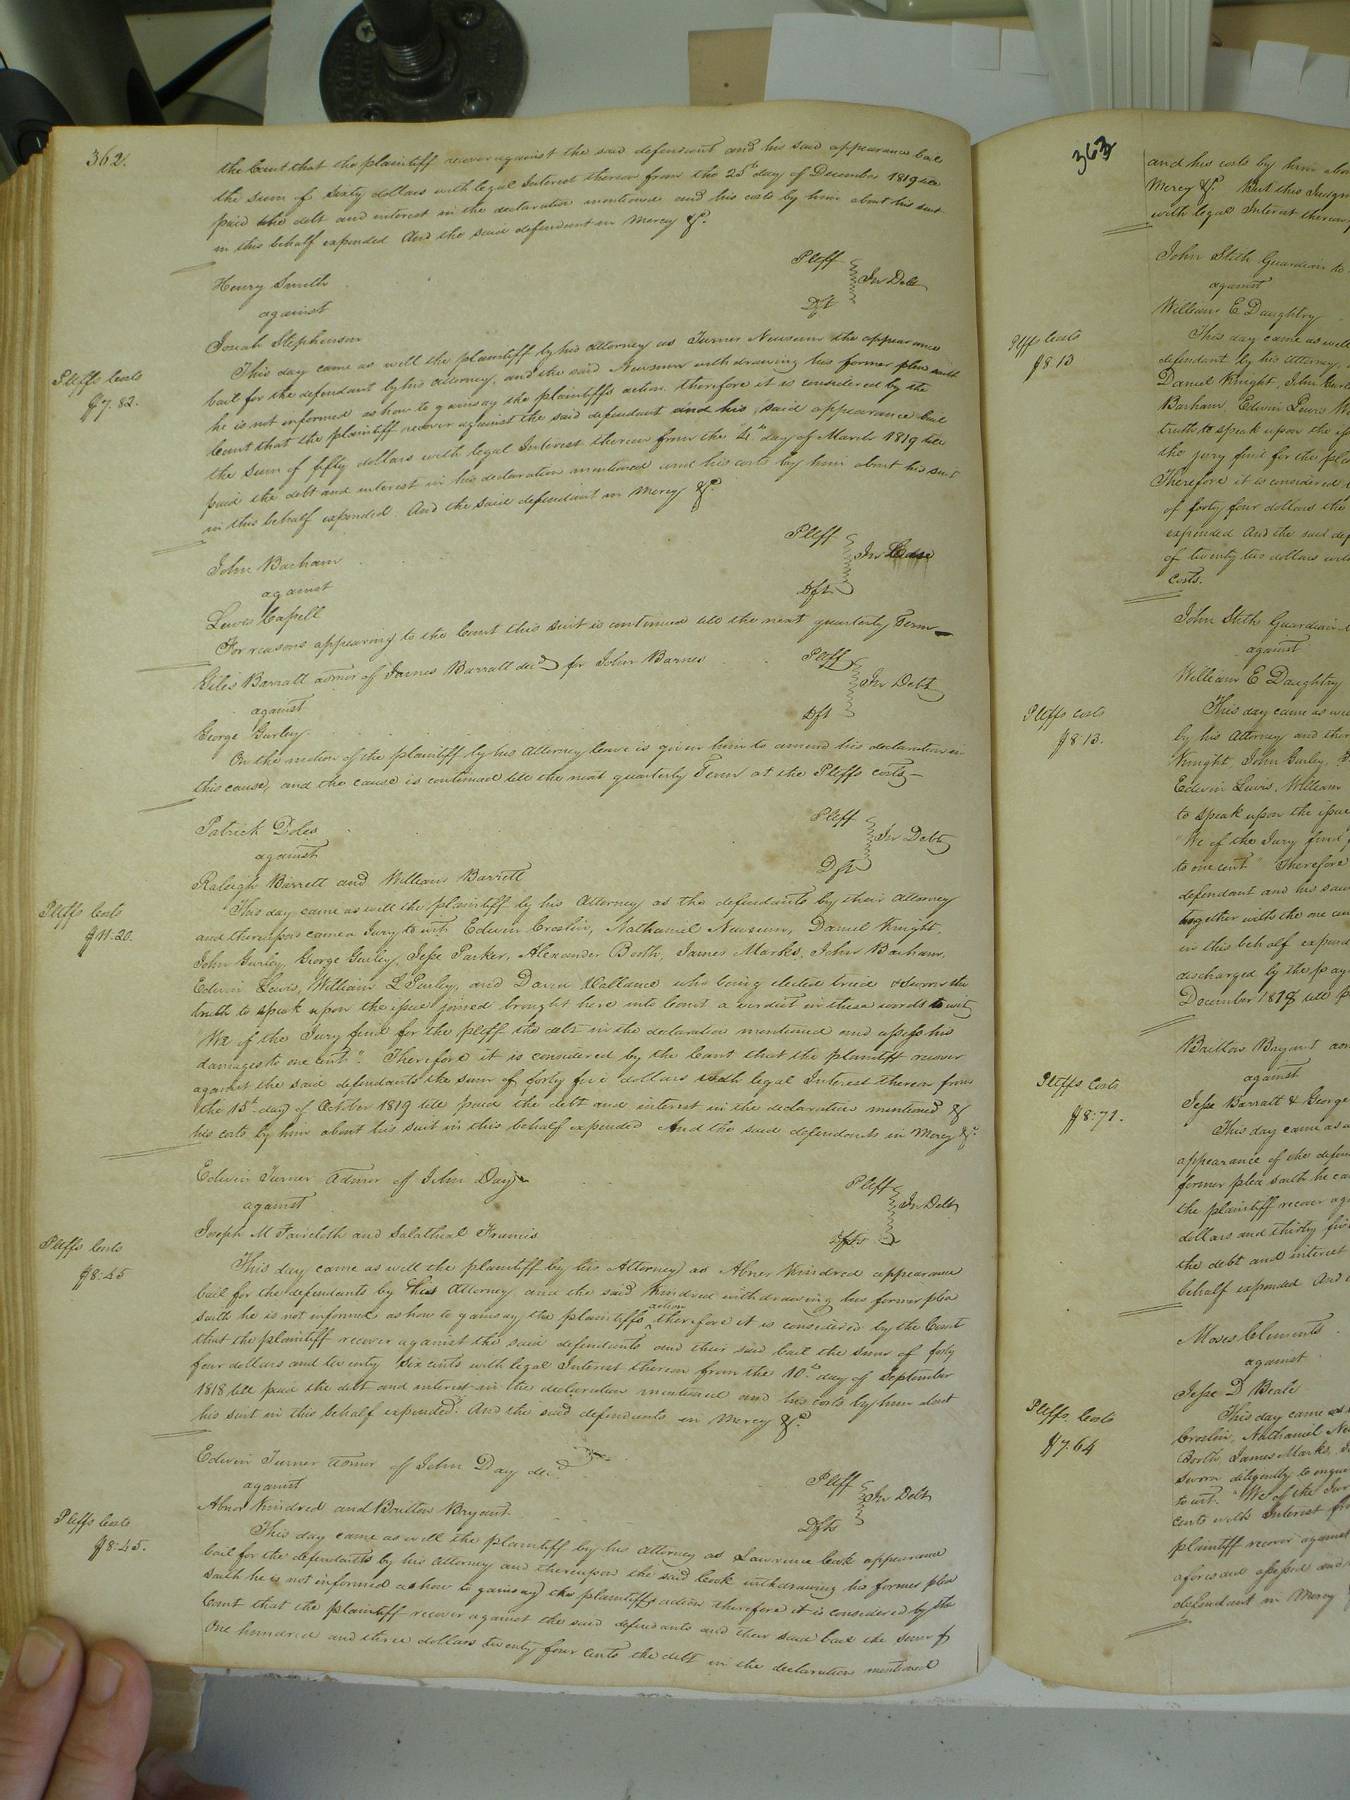 362.
the Court that the plaintiff recover against the said defendant and his said appearance bail
the sum of Sixty dollars with legal Interest thereon from the 25th day of December 1819 till
paid the debt and interest in the declaration mentioned and his costs by him about his suit
in this behalf expended And the said defendant in Mercy &c.
Henry Smith Pltff
against In Debt
Josiah Stephenson Dft
Pltffs Costs
$7.82.
This day came as well the plaintiff by his Attorney as Turner Newsum the appearance
bail for the defendant by his Attorney, and the said Newsum withdrawing his former plea saith
he is not informed as how to gainsay the plaintiffs action therefore it is considered by the
Court that the plaintiff recover against the said defendant and his said appearance bail
the sum of fifty dollars with legal Interest thereon from the 4th day of March 1819 till
paid the debt and interest in his declaration mentioned and his costs by him about his suit
in this behalf expended. And the said defendant in Mercy &c.
John Barham Pltff
against In Case
Lewis Capell Dft
For reasons appearing to the Court this suit is continued till the next quarterly Term
Giles Barratt admor of James Barratt decd for John Barnes Pltff
against In Debt
George Gurley Dft
On the motion of the plaintiff by his Attorney leave is given him to amend his declaration in
this cause, and the cause is continued till the next quarterly Term at the Pltffs costs
Patrick Doles Pltff
against In Debt
Raleigh Barrett and William Barrett Dft
Pltffs Costs
$11.20.
This day came as well the plaintiff by his Attorney as the defendants by their attorney
and thereupon came a Jury to wit Edwin Croslin, Nathaniel Newsum, Daniel Knight,
John Gurley, George Gurley, Jesse Parker, Alexander Booth, James Marks, John Barham,
Edwin Lewis, William L Pursley, and David Wallance who being elected tried & sworn the
truth to speak upon the issue joined brought here into Court a verdict in these words to wit
We of the Jury find for the pltff the debt in the declaration mentioned and assess his
damages to one cent". Therefore it is considered by the Court that the plaintiff recover
against the said defendants the sum of forty five dollars with legal Interest thereon from
the 15th day of October 1819 till paid the debt and interest in the declaration mentioned &
his costs by him about his suit in this behalf expended And the said defendants in Mercy &c.
Edwin Turner admor of John Day Pltff
against In Debt
Joseph M Faircloth and Salathial Francis Dfts
Pltffs Costs
$8.45
This day came as well the plaintiff by his Attorney as Abner Kindred appearance
bail for the defendants by his Attorney and the said Kindred withdrawing his former plea
saith he is not informed as how to gainsay the plaintiffs action therefore it is considered by the Court
that the plaintiff recover against the said defendants and their said bail the sum of forty
four dollars and twenty six cents with legal Interest thereon from the 10th day of September
1818 till paid the debt and interest in the declaration mentioned and his costs by him about
his suit in this behalf expended. And the said defendants in Mercy &c.
Edwin Turner admor of John Day decd Pltff
against In Debt
Abner Kindred and Britton Bryant Dfts
Pltffs Costs
$8.45.
This day came as well the plaintiff by his Attorney as Lawrence Cook appearance
bail for the defendants by his Attorney and thereupon the said Cook withdrawing his former plea
saith he is not informed as how to gainsay the plaintiffs action therefore it is considered by the
Court that the plaintiff recover against the said defendants and their said bail the sum of
One hundred and three dollars twenty four cents the debt in the declaration mentioned
363
and his costs by him
Mercy &c. But this Judgm
with legal Interest thereon
John Stith Guardian to
against
William E Daughtry
Pltffs Costs
$8.13
This day came as well
defendant by his Attorney
Daniel Knight, John Gurl
Barham, Edwin Lewis
truth to speak upon the
the jury find for the pl
Therefore it is considered
of forty four dollars the
expended And the said def
of twenty two dollars
costs.
John Stith Guardian
against
William E Daughtry
Pltffs costs
$8.13.
This day came as we
by his Attorney and ther
Knight John Gurley,
Edwin Lewis, William
to speak upon the issue
"We of the Jury find
to one cent" Therefore
defendant and his said
together with the one cen
in this behalf expend
discharged by the pay
December 1818 till
Britton Bryant
against
Jesse Barratt & George
Pltffs Costs
$8.71.
This day came as
appearance of the defen
former plea saith he
the plaintiff recover
dollars and thirty five
the debt and interest
behalf expended And
Moses Clements
against
Jesse D Beale
Pltffs Costs
$7.64
This day came
Croslin, Nathaniel
Booth, James Marks,
sworn diligently to enqu
to wit. "We of the Jur
cents with Interest
plaintiff recover against
aforesaid assessed and
defendant in Mercy